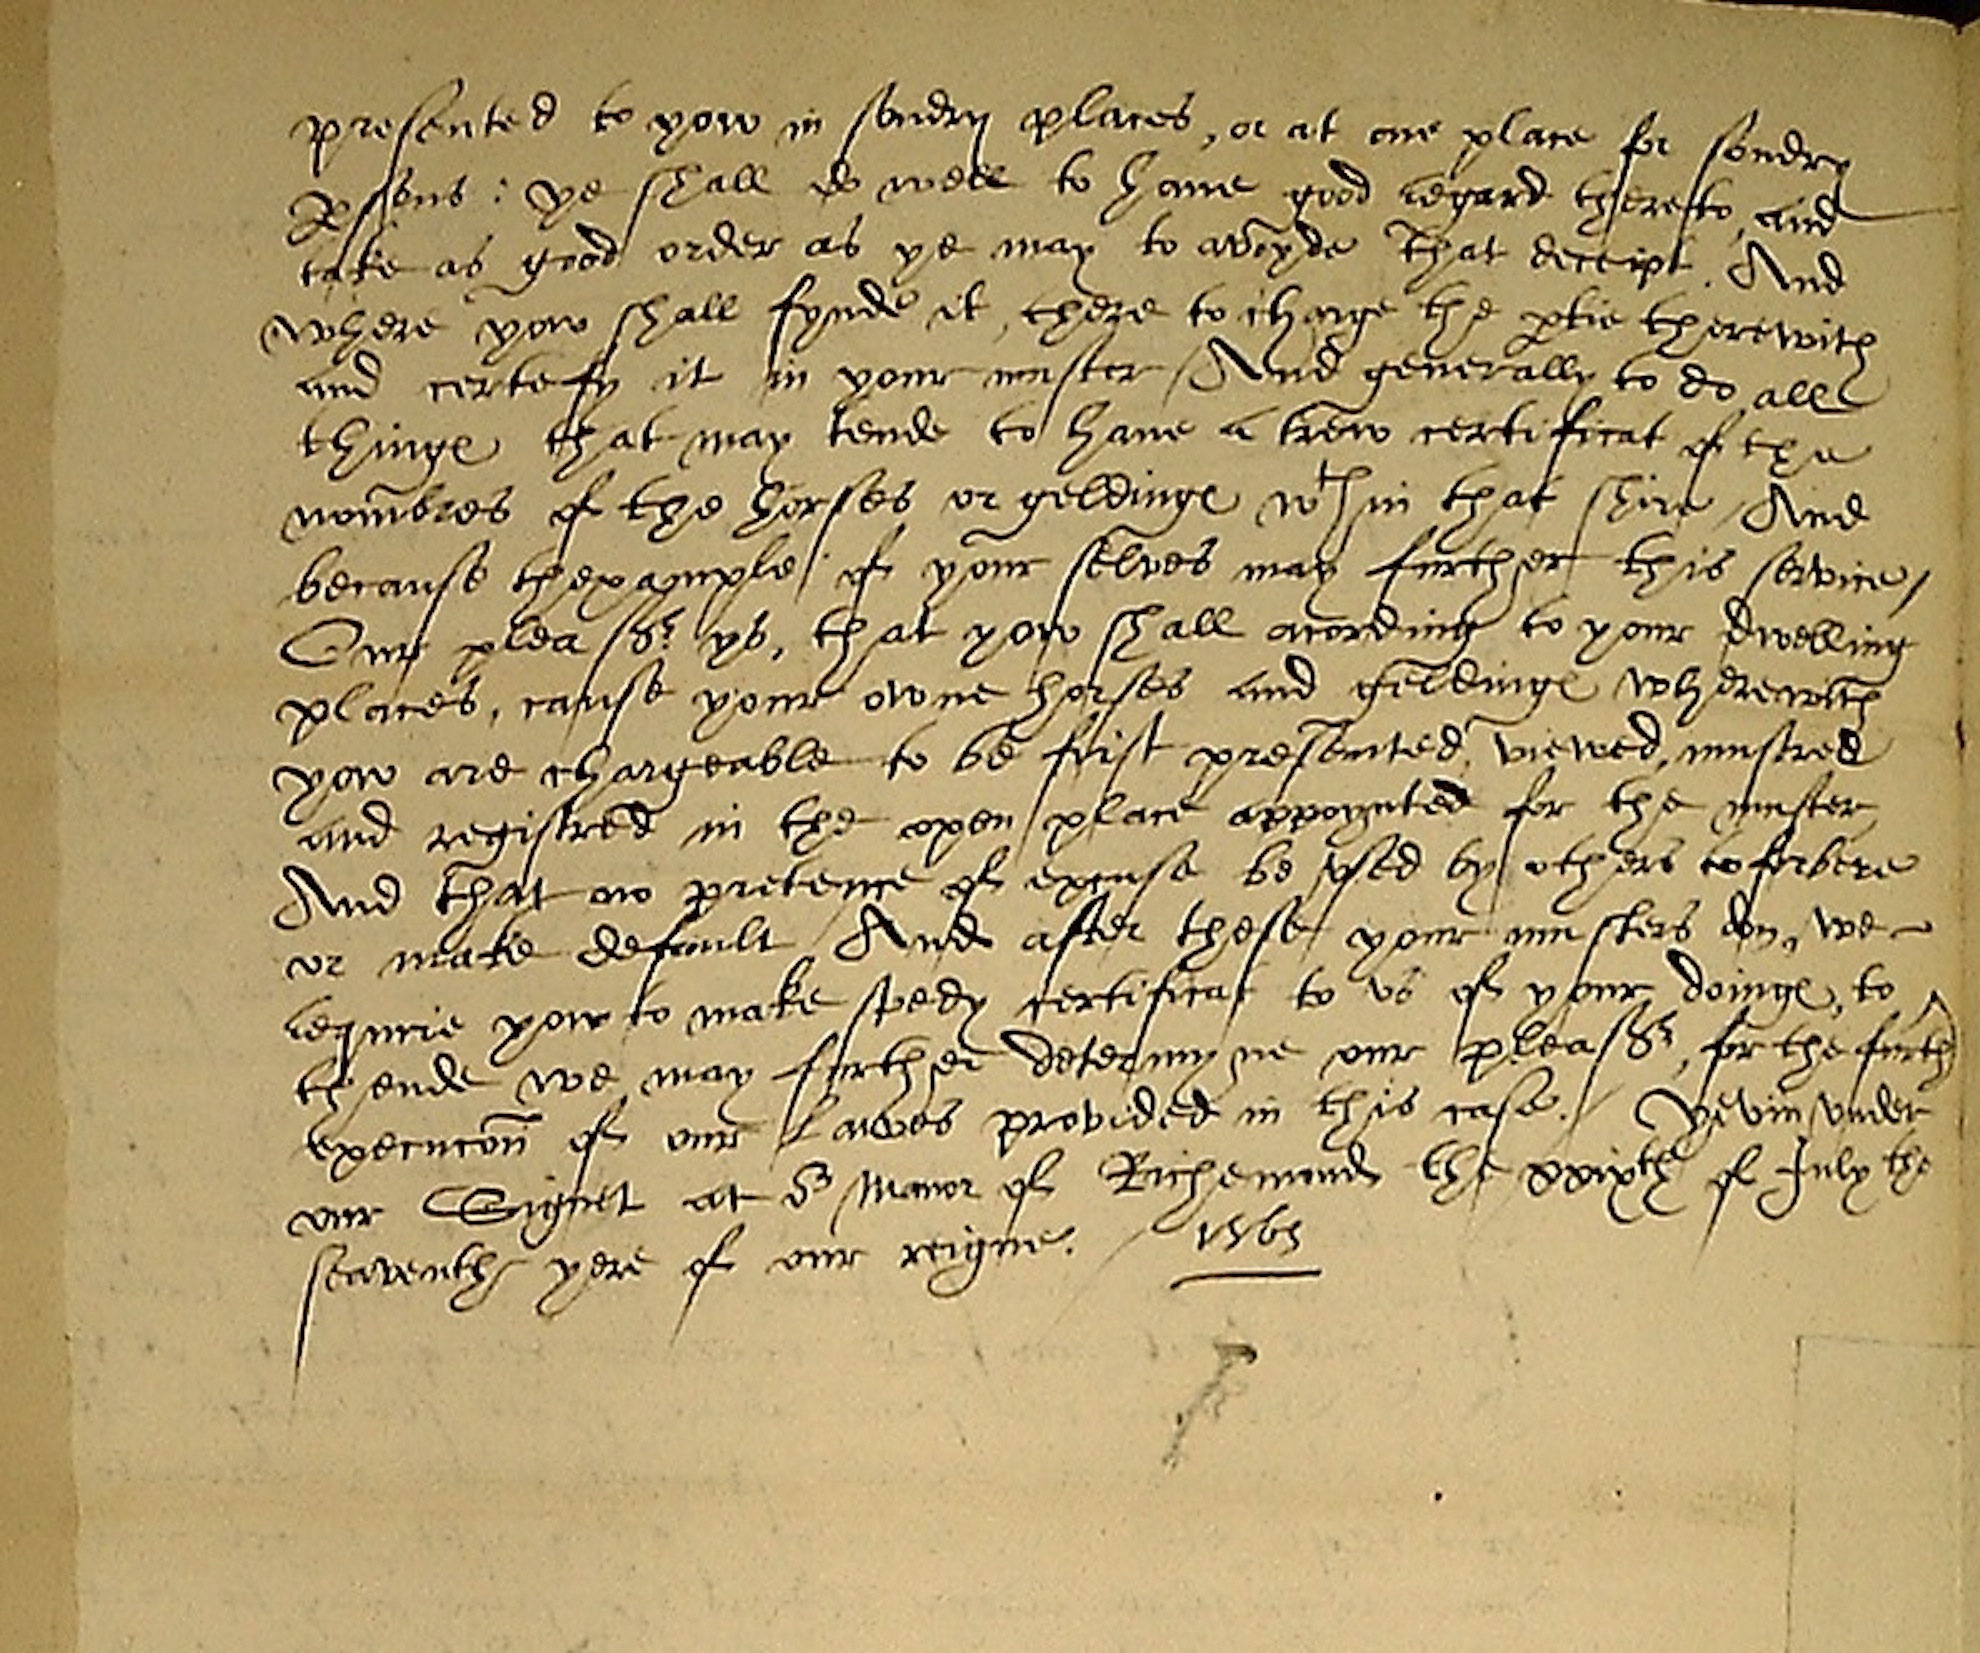 presented to yow in sondry places, or at one place for sondry
pssons : ye shall do well to have good regard thereto, and
take as good order as ye may to avoyde that deceipt. And
where yow shall fynde it, there to charge the ptie therewith
and certefy it in your muster / And generally to do all
thinges that may tende to have a trew certificat of the
nombres of the horses or geldinges wth in that shire / And
because thexample of your selves may further this service /
Our pleasr ys, that yow shall acording to your dwelling
places, cause your owne horses and geldinges wherewith
yow are chargeable to be first presented, viewed, mustred
and registred in the open place appoynted for the muster,
And that no pretence of excuse be vsed by others to forbere
or make default / And after these your musters don, we
require yow to make spedy certificat to vs of your doinges, to
thende we may further determyne our pleasr, for the furth
execucon of our Lawes provided in this case. / Yevin vnder
our Signet at or Manor of Richemund the xxixth of July the
seaventh yere of our reigne. / 1565